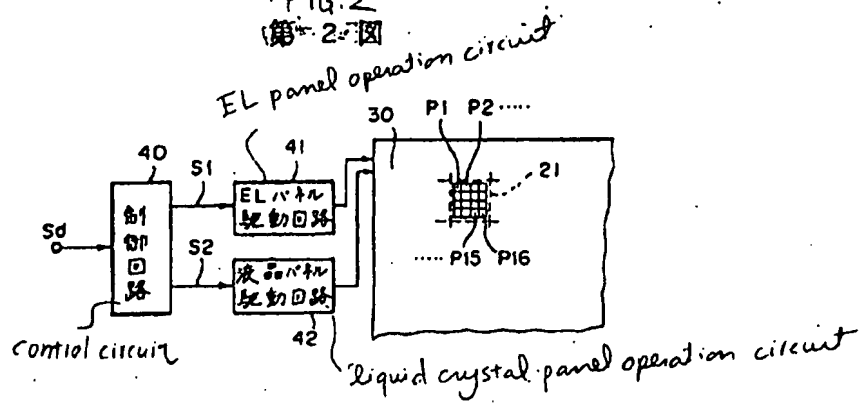 FIG.2
第2図
EL panel operation circuit
30
P1 P2 .....
40
S1
41
ELパネル
駆動回路
21
Sd
制御回路
S2
液晶パネル
駆動回路
42
..... P15 P16
control circuit
liquid crystal panel operation circuit